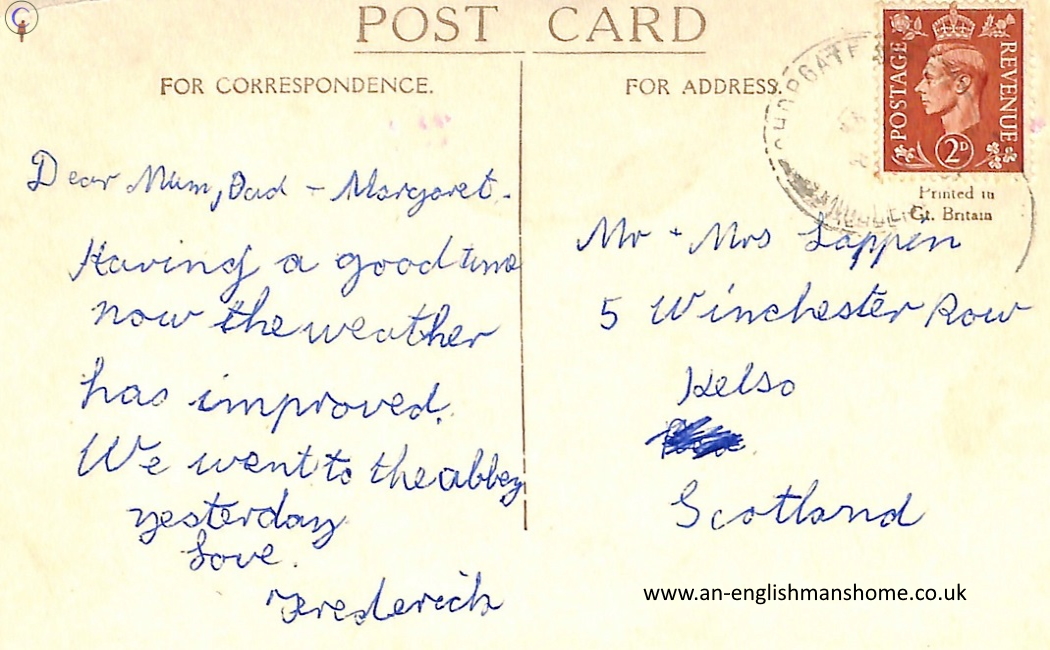 POST CARD
FOR CORRESPONDENCE.
Dear Mum, Dad - Margaret.
Having a good time
now the weather
has improved.
We went to the abbey
yesterday
Love.
Frederick
FOR ADDRESS.
POSTAGE
REVENUE
2D
Printed in
Gt. Britain
Mr + Mrs Lappin
5 Winchester Row
Kelso
Scotland
www.an-englishmanshome.co.uk